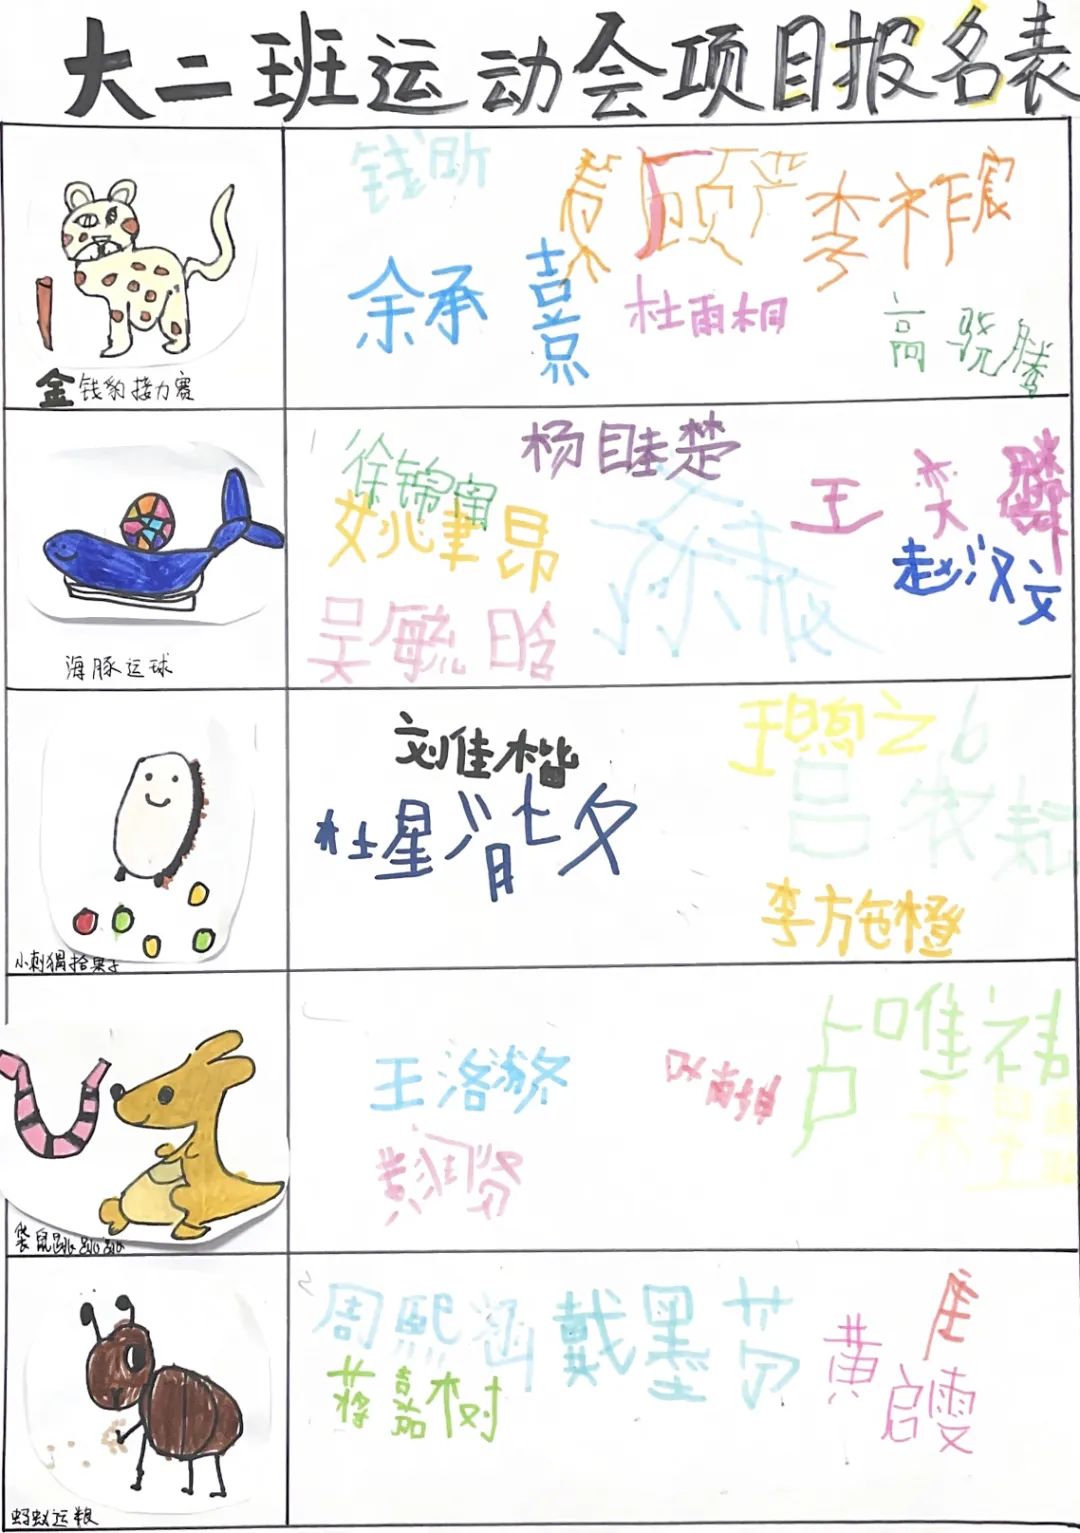 大二班运动会项目报名表
钱昕
顾严
李祚宸
余承熹
杜雨桐
高骁腾
金钱豹接力赛
杨睦楚
徐锦甯
姚聿昂
王奕麟
赵汉文
吴毓晗
海豚运球
刘佳楷
王煦之
杜星
吕牧耘
李方橙
小刺猬捡果子
王洛
唯祎
黄润
袋鼠跳跳跳
周熙涵
戴墨芩
黄启雯
蒋嘉树
蚂蚁运粮